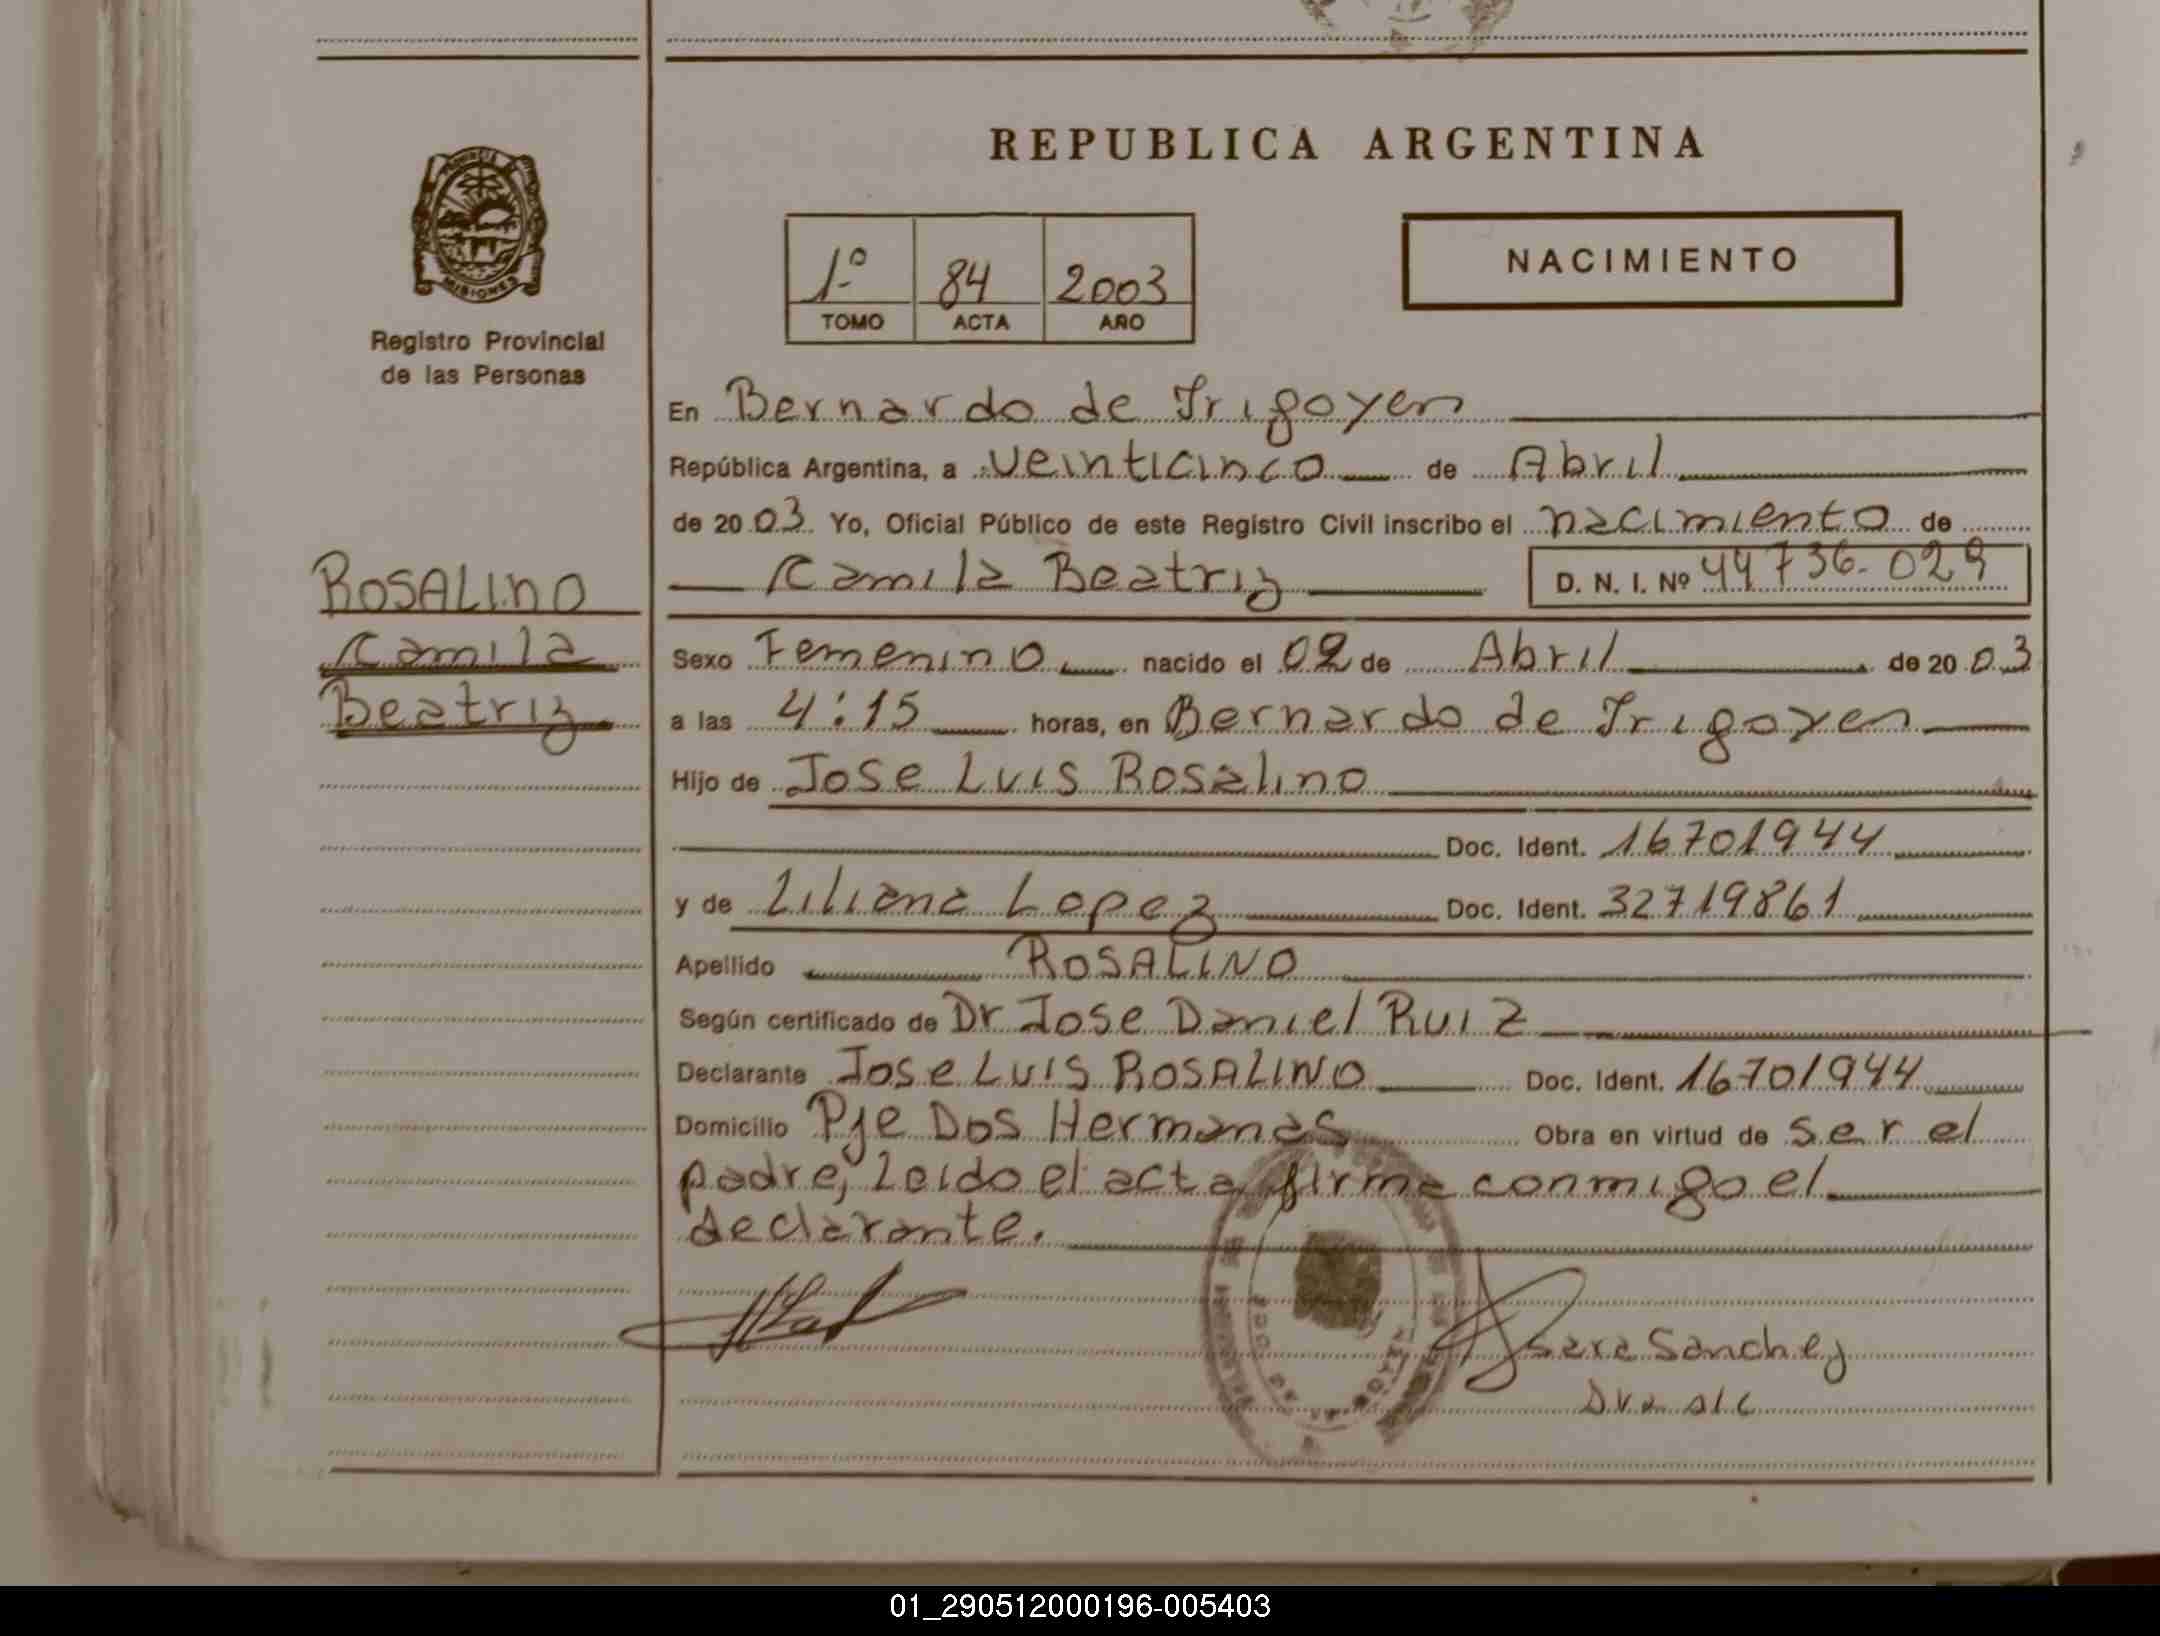 REPUBLICA ARGENTINA
PROVINCIA
MISIONES
Registro Provincial
de las Personas
1º 84 2003
TOMO ACTA AÑO
NACIMIENTO
En Bernardo de Irigoyen
República Argentina, a veinticinco de Abril
de 2003 Yo, Oficial Público de este Registro Civil inscribo el nacimiento de
Camila Beatriz D. N. I. Nº 44736-029
ROSALINO
Camila
Beatriz
Sexo Femenino nacido el 02 de Abril de 2003
a las 4:15 horas, en Bernardo de Irigoyen
Hijo de Jose Luis Rosalino
Doc. Ident. 16701944
y de Liliana Lopez Doc. Ident. 32719861
Apellido ROSALINO
Según certificado de Dr Jose Daniel Ruiz
Declarante Jose Luis ROSALINO Doc. Ident. 16701944
Domicilio Pje Dos Hermanas Obra en virtud de ser el
padre, Leido el acta firma conmigo el
declarante.
Sara Sanchez
01_290512000196-005403